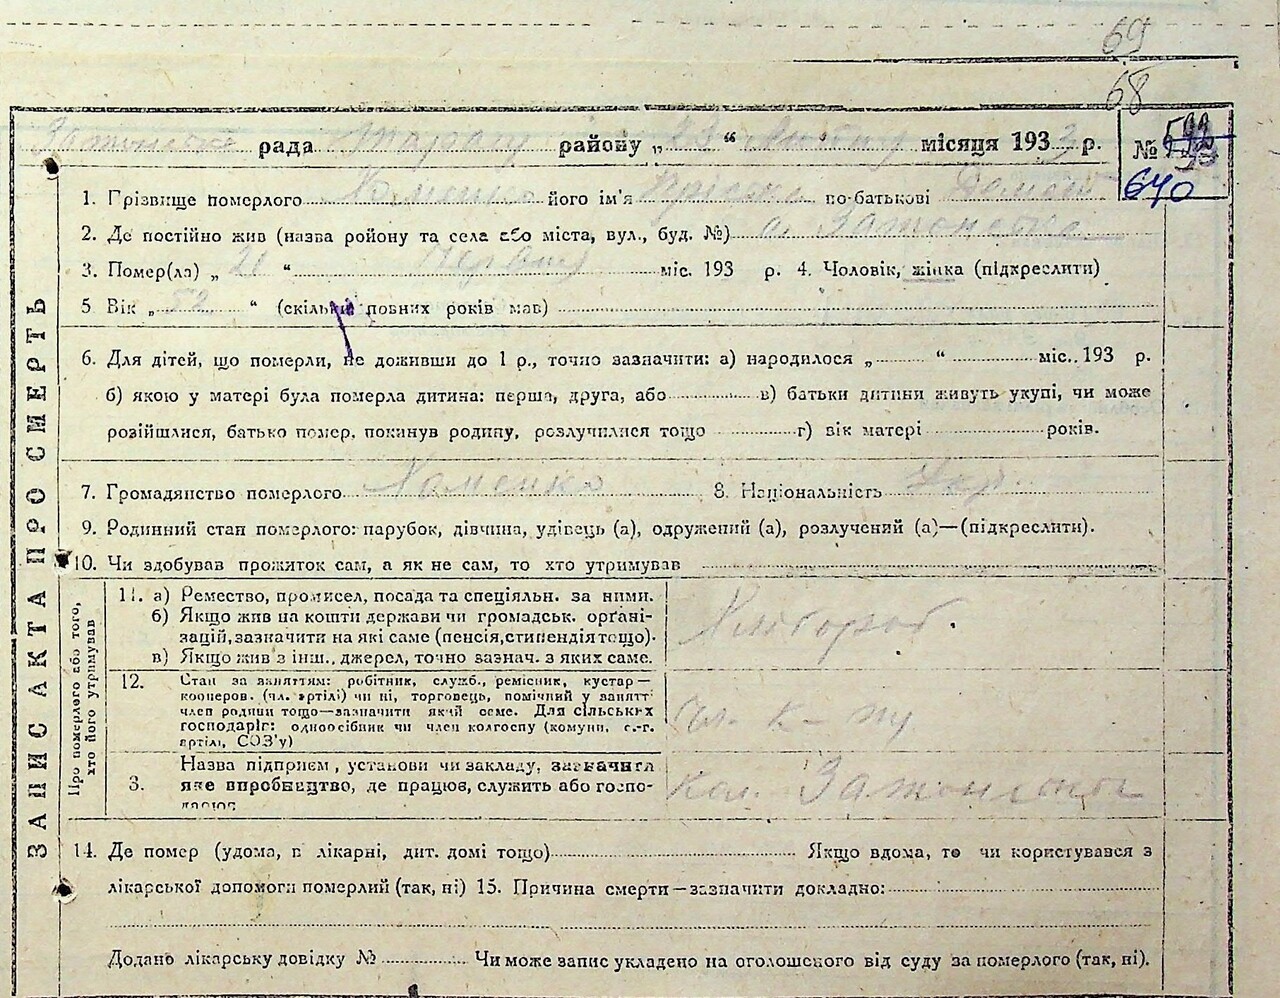 69
68
рада району „ 23 “ місяця 1933 р. №
640
1. Грізвище померлого його ім'я по-батькові
2. Де постійно жив (назва району та села або міста, вул., буд. №) с.
3. Помер(ла) „ 21 “ червня міс. 193 р. 4. Чоловік, жінка (підкреслити)
5 Вік „ 52 “ (скільки повних років мав)
6. Для дітей, що померли, не доживши до 1 р., точно зазначити: а) народилося „ “ міс. 193 р.
б) якою у матері була померла дитина: перша, друга, або в) батьки дитини живуть укупі, чи може
розійшлися, батько помер, покинув родину, розлучилися тощо г) вік матері років.
7. Громадянство померлого 8. Національність Укр.
9. Родинний стан померлого: парубок, дівчина, удівець (а), одружений (а), розлучений (а)—(підкреслити).
10. Чи здобував прожиток сам, а як не сам, то хто утримував
ЗАПИС АКТА ПРО СМЕРТЬ
Про померлого або того,
хто його утримував
11. а) Ремество, промисел, посада та спеціяльн. за ними.
б) Якщо жив на кошти держави чи громадськ. орґані-
зацій, зазначити на які саме (пенсія, стипендія тощо).
в) Якщо жив з інш. джерел, точно зазнач. з яких саме.
Хлібороб.
12. Стан за заняттям: робітник, служб., ремісник, кустар—
кооперов. (чл. артілі) чи ні, торговець, помічний у занятт
член родини тощо—зазначити який саме. Для сільських
господарів: одноосібник чи член колгоспу (комуни, с.-г.
артілі, СОЗ'у)
чл. к-пу
3. Назва підприєм, установи чи закладу, зазначити
яке виробництво, де працює, служить або госпо-
дарює
кол.
14. Де помер (удома, в лікарні, дит. домі тощо) Якщо вдома, то чи користувався з
лікарської допомоги померлий (так, ні) 15. Причина смерти—зазначити докладно:
Додано лікарську довідку № Чи може запис укладено на оголошеного від суду за померлого (так, ні).